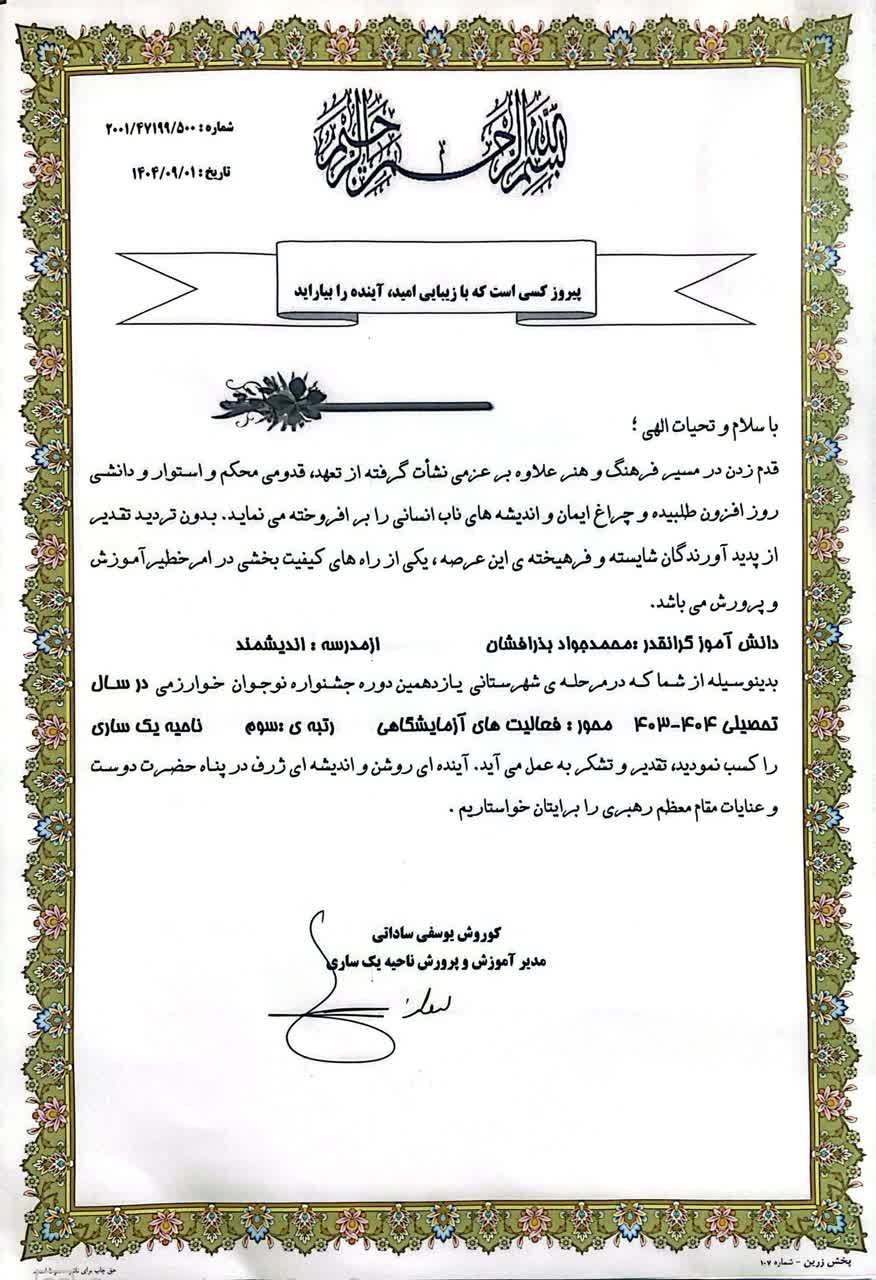 بسم الله الرحمن الرحیم
شماره : ۲۰۰۱/۴۷۱۹۹/۵۰۰
تاریخ : ۱۴۰۴/۰۹/۰۱
پیروز کسی است که با زیبایی امید، آینده را بیاراید
با سلام و تحیات الهی ؛
قدم زدن در مسیر فرهنگ و هنر علاوه بر عزمی نشأت گرفته از تعهد، قدومی محکم و استوار و دانشی
روز افزون طلبیده و چراغ ایمان و اندیشه های ناب انسانی را بر افروخته می نماید. بدون تردید تقدیر
از پدید آورندگان شایسته و فرهیخته ی این عرصه ، یکی از راه های کیفیت بخشی در امر خطیر آموزش
و پرورش می باشد.
دانش آموز گرانقدر :محمدجواد بذرافشان ازمدرسه : اندیشمند
بدینوسیله از شما که در مرحله ی شهرستانی یازدهمین دوره جشنواره نوجوان خوارزمی در سال
تحصیلی ۴۰۴-۴۰۳ محور : فعالیت های آزمایشگاهی رتبه ی :سوم ناحیه یک ساری
را کسب نمودید، تقدیر و تشکر به عمل می آید. آینده ای روشن و اندیشه ای ژرف در پناه حضرت دوست
و عنایات مقام معظم رهبری را برایتان خواستاریم .
کوروش یوسفی ساداتی
مدیر آموزش و پرورش ناحیه یک ساری
پخش زرین - شماره ۱۰۷
حق چاپ برای